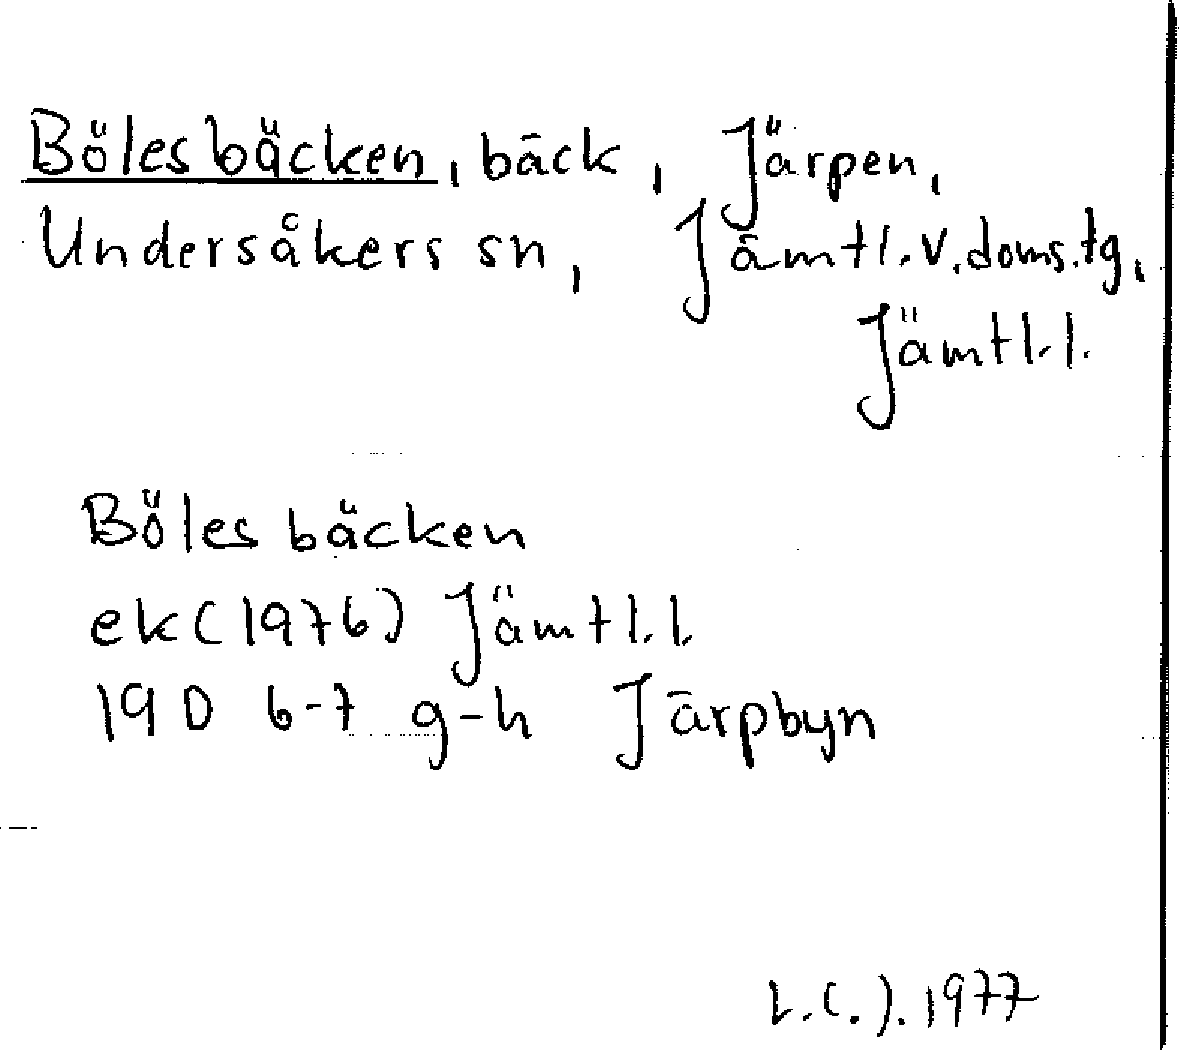 Bölesbäcken, bäck, Järpen,
Undersåkers sn, Jämtl.v.doms.tg,
Jämtl.l.
Bölesbäcken
ek (1976) Jämtl.l.
19D 6-7 g-h Järpbyn
1977